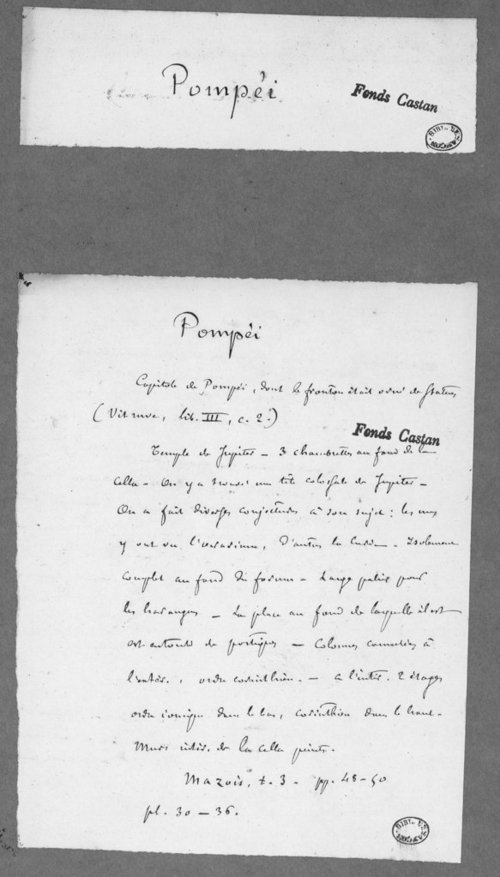 Pompéi
Fonds Castan
Pompéi
Capitole de Pompéi, dont le fronton était orné de statues
(Vitruve, lib. III, c. 2.)
Fonds Castan
Temple de Jupiter - 3 chambrettes au fond de la
cella - On y a trouvé une tête colossale de Jupiter -
On a fait diverses conjectures à son sujet : les uns
y ont vu l'aerarium, d'autres la curie - Isolement
complet au fond du forum - Large palier pour
les harangues - La place au fond de laquelle il est
est entourée de portiques - Colonnes cannelées à
l'extér., ordre corinthien. - à l'intér. 2 étages
ordre ionique dans le bas, corinthien dans le haut -
Murs intér. de la cella peints.
Mazois, t. 3 - pp. 48-50
pl. 30 - 36.